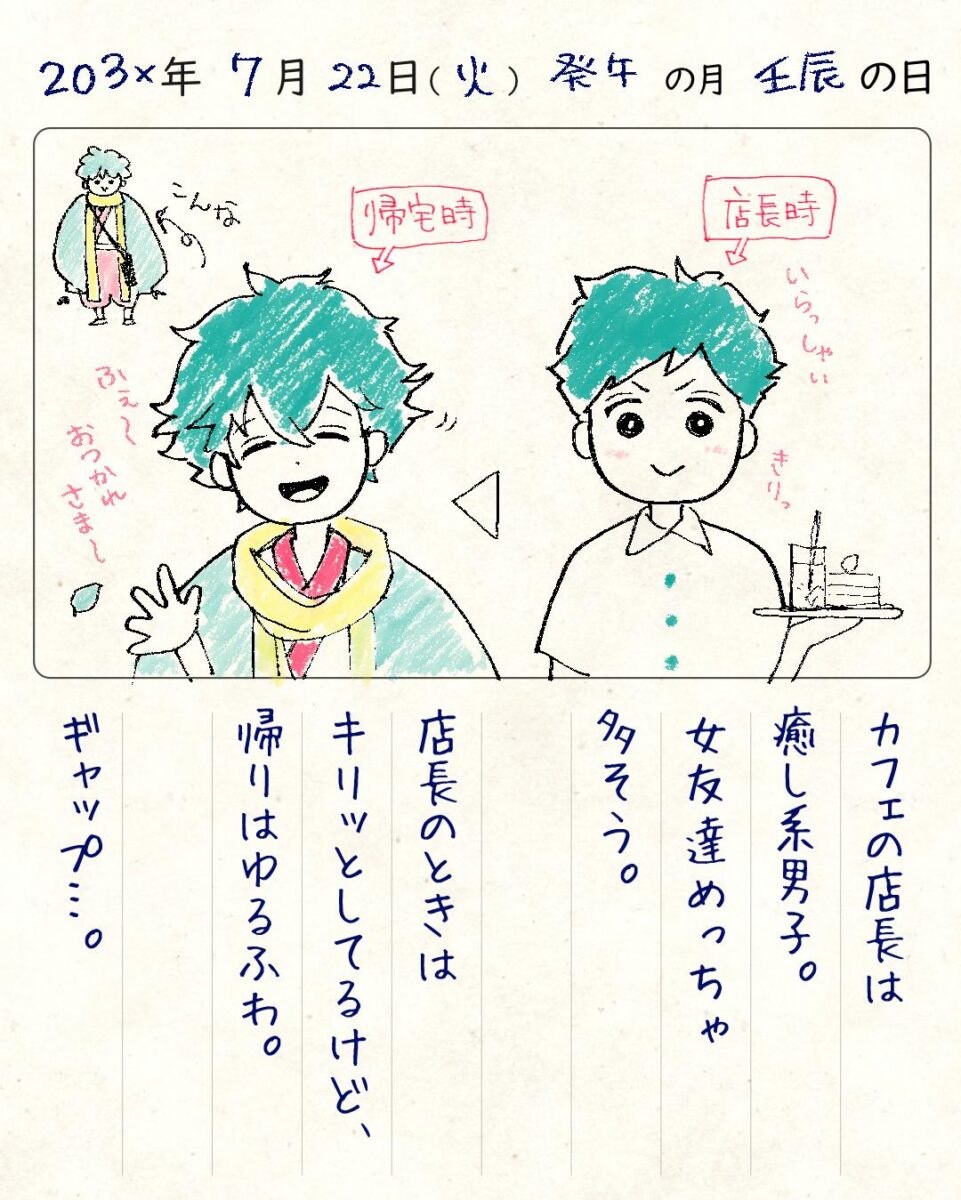 203×年 7月 22日(火) 癸午 の月 壬辰 の日
こんな
帰宅時
店長時
いらっしゃい
きりっ
ふぇ〜
おつかれ
さま〜
カフェの店長は
癒し系男子。
女友達めっちゃ
多そう。
店長のときは
キリッとしてるけど、
帰りはゆるふわ。
ギャップ…。